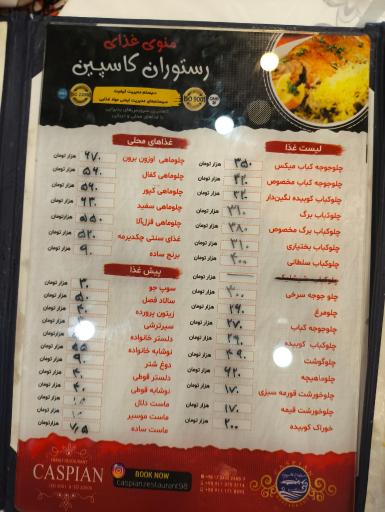 منوی غذای
رستوران کاسپین
سیستم مدیریت کیفیت
سیستم‌های مدیریت ایمنی مواد غذایی
ISO 22000
ISO 9001
لیست غذا
چلوجوجه کباب میکس ۳۵۰ هزار تومان
چلوجوجه کباب مخصوص ۴۲۰ هزار تومان
چلوکباب کوبیده نگین‌دار هزار تومان
چلوکباب برگ هزار تومان
چلوکباب برگ مخصوص ۳۸۰ هزار تومان
چلوکباب بختیاری ۳۱۰ هزار تومان
چلوکباب سلطانی ۴۰۰ هزار تومان
چلو جوجه سرخی ۳۰۰ هزار تومان
چلومرغ ۲۹۰ هزار تومان
چلوجوجه کباب ۲۷۰ هزار تومان
چلوکباب کوبیده ۲۹۰ هزار تومان
چلوگوشت ۴۹۰ هزار تومان
چلوماهیچه ۶۲۰ هزار تومان
چلوخورشت قورمه سبزی ۱۷۰ هزار تومان
چلوخورشت قیمه ۱۷۰ هزار تومان
خوراک کوبیده ۲۰۰ هزار تومان
غذاهای محلی
چلوماهی اوزون برون ۶۷۰ هزار تومان
چلوماهی کفال ۵۶۰ هزار تومان
چلوماهی کپور ۵۶۰ هزار تومان
چلوماهی سفید ۶۳۰ هزار تومان
چلوماهی قزل‌آلا ۵۵۰ هزار تومان
غذای سنتی چکدیرمه ۵۲۰ هزار تومان
برنج ساده ۹۰ هزار تومان
پیش غذا
سوپ جو ۳۰ هزار تومان
سالاد فصل ۵۰ هزار تومان
زیتون پرورده هزار تومان
سیرترشی هزار تومان
دلستر خانواده هزار تومان
نوشابه خانواده ۵۵ هزار تومان
دوغ شتر ۹۰ هزار تومان
دلستر قوطی ۴۰ هزار تومان
نوشابه قوطی ۴۰ هزار تومان
ماست دلال هزار تومان
ماست موسیر هزار تومان
ماست ساده ۷/۵ هزار تومان
CASPIAN
BOOK NOW
caspian.restaurant98